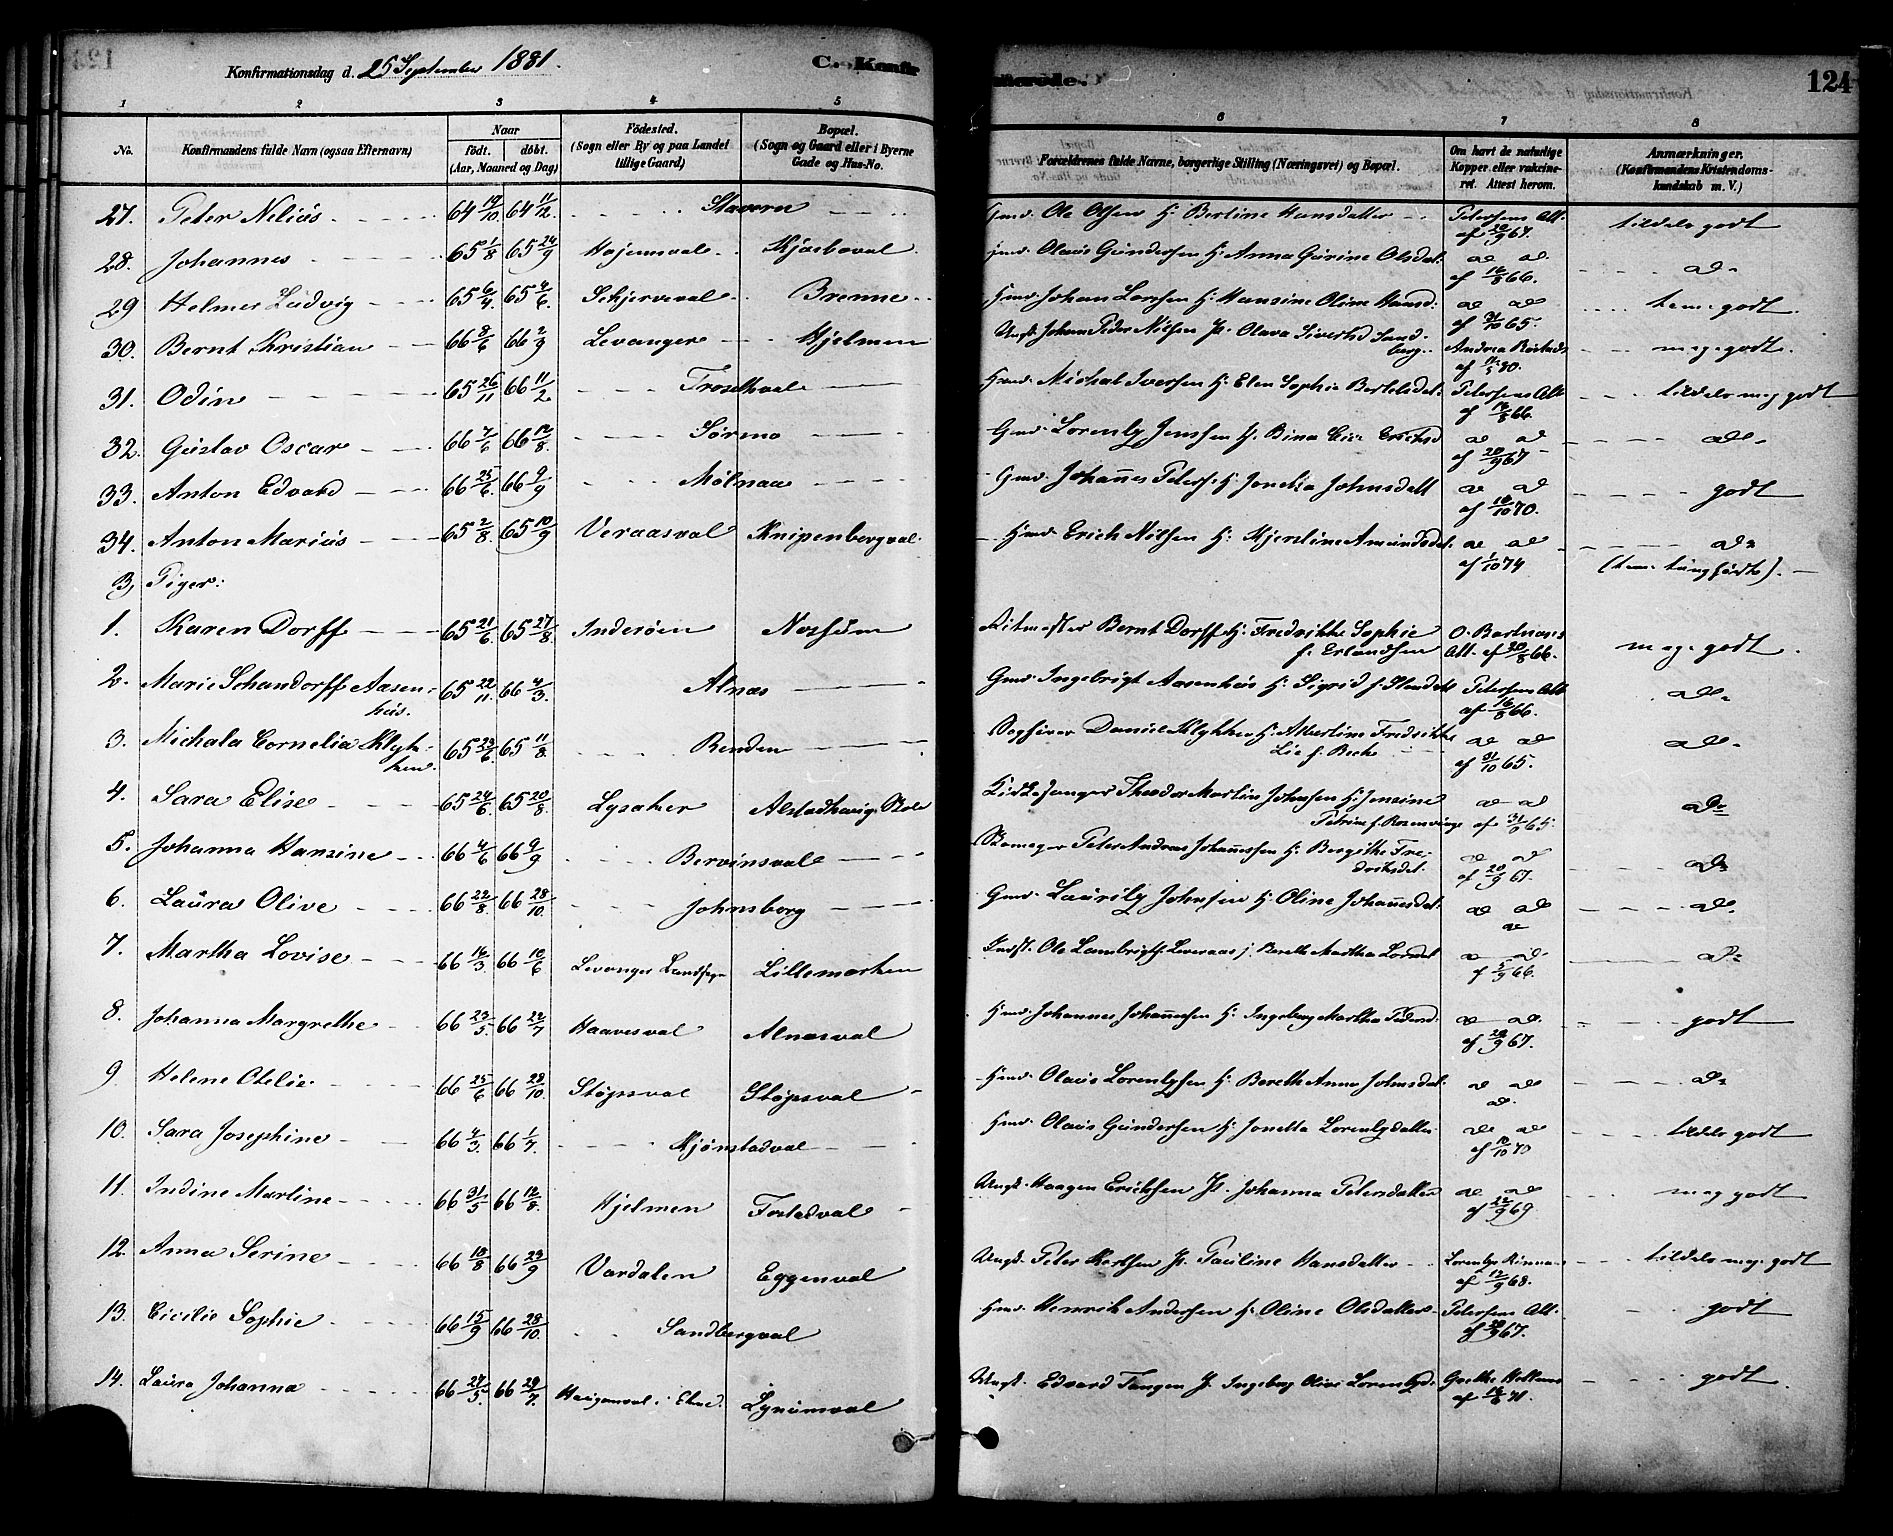 Konfirmationsdag d. 25 September 1881.
C. Konfir
merede.
124
1 2 3 4 5 6 7 8
No.
Konfirmandens fulde Navn (ogsaa Efternavn)
Naar
født. døbt.
(Aar, Maaned og Dag)
Fødested.
(Sogn eller By og paa Landet
tillige Gaard)
Bopæl.
(Sogn og Gaard eller i Byerne
Gade og Hus-No.
Forældrenes fulde Navne, borgerlige Stilling (Næringsvei) og Bopæl.
Om havt de naturlige
Kopper eller vakcine-
ret. Attest herom.
Anmærkninger.
(Konfirmandens Kristendoms-
kundskab m. V.)
27. Peter Nelius 64 14/10 64 11/12 Stavern Gmd. Ole Olsen H: Berline Hansdatter Petersens Att. af 20/9 67. tildels godt
28. Johannes 65 1/8 65 24/9 Højemsval Olaus Gundersen H: Anna Gurine Olsdat. ad ad af 16/8 66. ad
29 Helmer Ludvig 65 6/4 65 4/6 Skjerveval Brenne Hmd. Johan Larsen H: Hansine Oline Hansd: ad ad af 31/10 65. tem. godt.
30. Bernt Kristian 66 8/6 66 2/9 Levanger Hjelmen Ungk. Johan Peder Nilsen P. Olava Sivertsd Sand-
berg. Andrea Rostads af 5 80. meg. godt.
31. Odin 65 26/11 66 11/2 Hmd. Michal Iversen H: Elen Sophie Bertelsdat. Petersens Att af 16/8 66 tildels meg godt
32. Gustav Oscar 66 7/6 66 12/8. Sørmo Gmd. Lorents Jensen H. ad ad af 20/9 67 ad
33. Anton Edvard 66 25/6 66 9/9 Mølnaa Gmd. Johannes Peters: H: Jonetta Johnsdatt ad ad af 10/10 70. godt
34. Anton Marius 65 2/8 65 10/9 Veraasval Knipenbergval. Hmd. Erich Nilsen H: Kjerstine Amundsdat. ad ad af 1/10 74 ad
B, Piger:
1. Karen Dorff 65 21/6 65 27/8 Inderøen Nossum Ritmester Bernt Dorff H: Fredrikke Sophie
f. Erlandsen Att. af 20/8 66. meg. godt.
2. Marie Schandorff Aasen-
hus. 65 22/11 66 4/3. Alnæs Gmd. Ingebrigt Aasenhus H. Sigrid f. Petersens Att af 16/8 66. ad
3. Michala Cornelia Klyk-
ken. 65 23/6 65 11/8 Renden Daniel Klykken H: Albertine Fredrikke
Lie f. ad ad af 31/10 65. ad
4. Sara Elise 65 24/6 65 20/8. Lysaker Alstadhaug Kirkesanger Theodor Martin Johnsen H: Jensine
Petrine f. Rosenvinge ad ad af 31/10 65. ad
5. Johanna Hansine 66 4/6 66 9/9 Bervinsval Peter Andreas Johannessen H. Bergithe Fre-
driksdat. ad ad af 20/9 67. ad
6. Laura Olive 66 22/8. 66 28/10. Johnsborg Gmd. Laurits Johnsen H. Oline Johannesdat. ad ad ad ad
7. Martha Lovise 66 16/3 66 10/6 Levanger Landsogn Lillemarken Indst. Ole Lambrigts. Leveraas j. Bereth Martha Lornsd ad ad af 5/9 66. ad
8. Johanna Margrethe 66 23/5 66 22/7 Haavesval Alnæsval Hmd. Johannes Johannesen H: Ingeborg Martha Pedersd. ad ad af 20/9 67. godt
9 Helene Otelie 66 25/6 66 28/10. Støpsval Støpsval Hmd. Olaus Lorentsen H. Bereth Anna Johnsdat. ad ad ad. ad
10. Sara Josephine 66 4/3. 66 1/7. Mjønstadval Hmd. Olaus Gundersen H: Jonetta Lorentsdatter ad ad af 10/10 70 tildels godt
11. Indine Martine 66 31/5 66 12/8. Hjelmen Fostadval Ungk. Haagen Ericksen P. Johanna Petersdatter ad ad af 22/9 69 meg godt
12. Anna Serine 66 18/8 66 23/9 Værdalen Eggenval Ungk. Peter P. Pauline Hansdatter Lorents af 12/9 68. tildels meg. godt
13. Cicilie Sophie 66 15/9 66 28/10. Sandbergval Hmd. Henrik Andersen H. Oline Olsdatter Petersens Att. af 20/9 67. godt
14. Laura Johanna 66 27/5. 66 29/7. Haugenval i Ekne. Lynumval Ungk. Edvard Tangen P. Ingeborg Olive Lorentsd. Grethe af 71. godt.